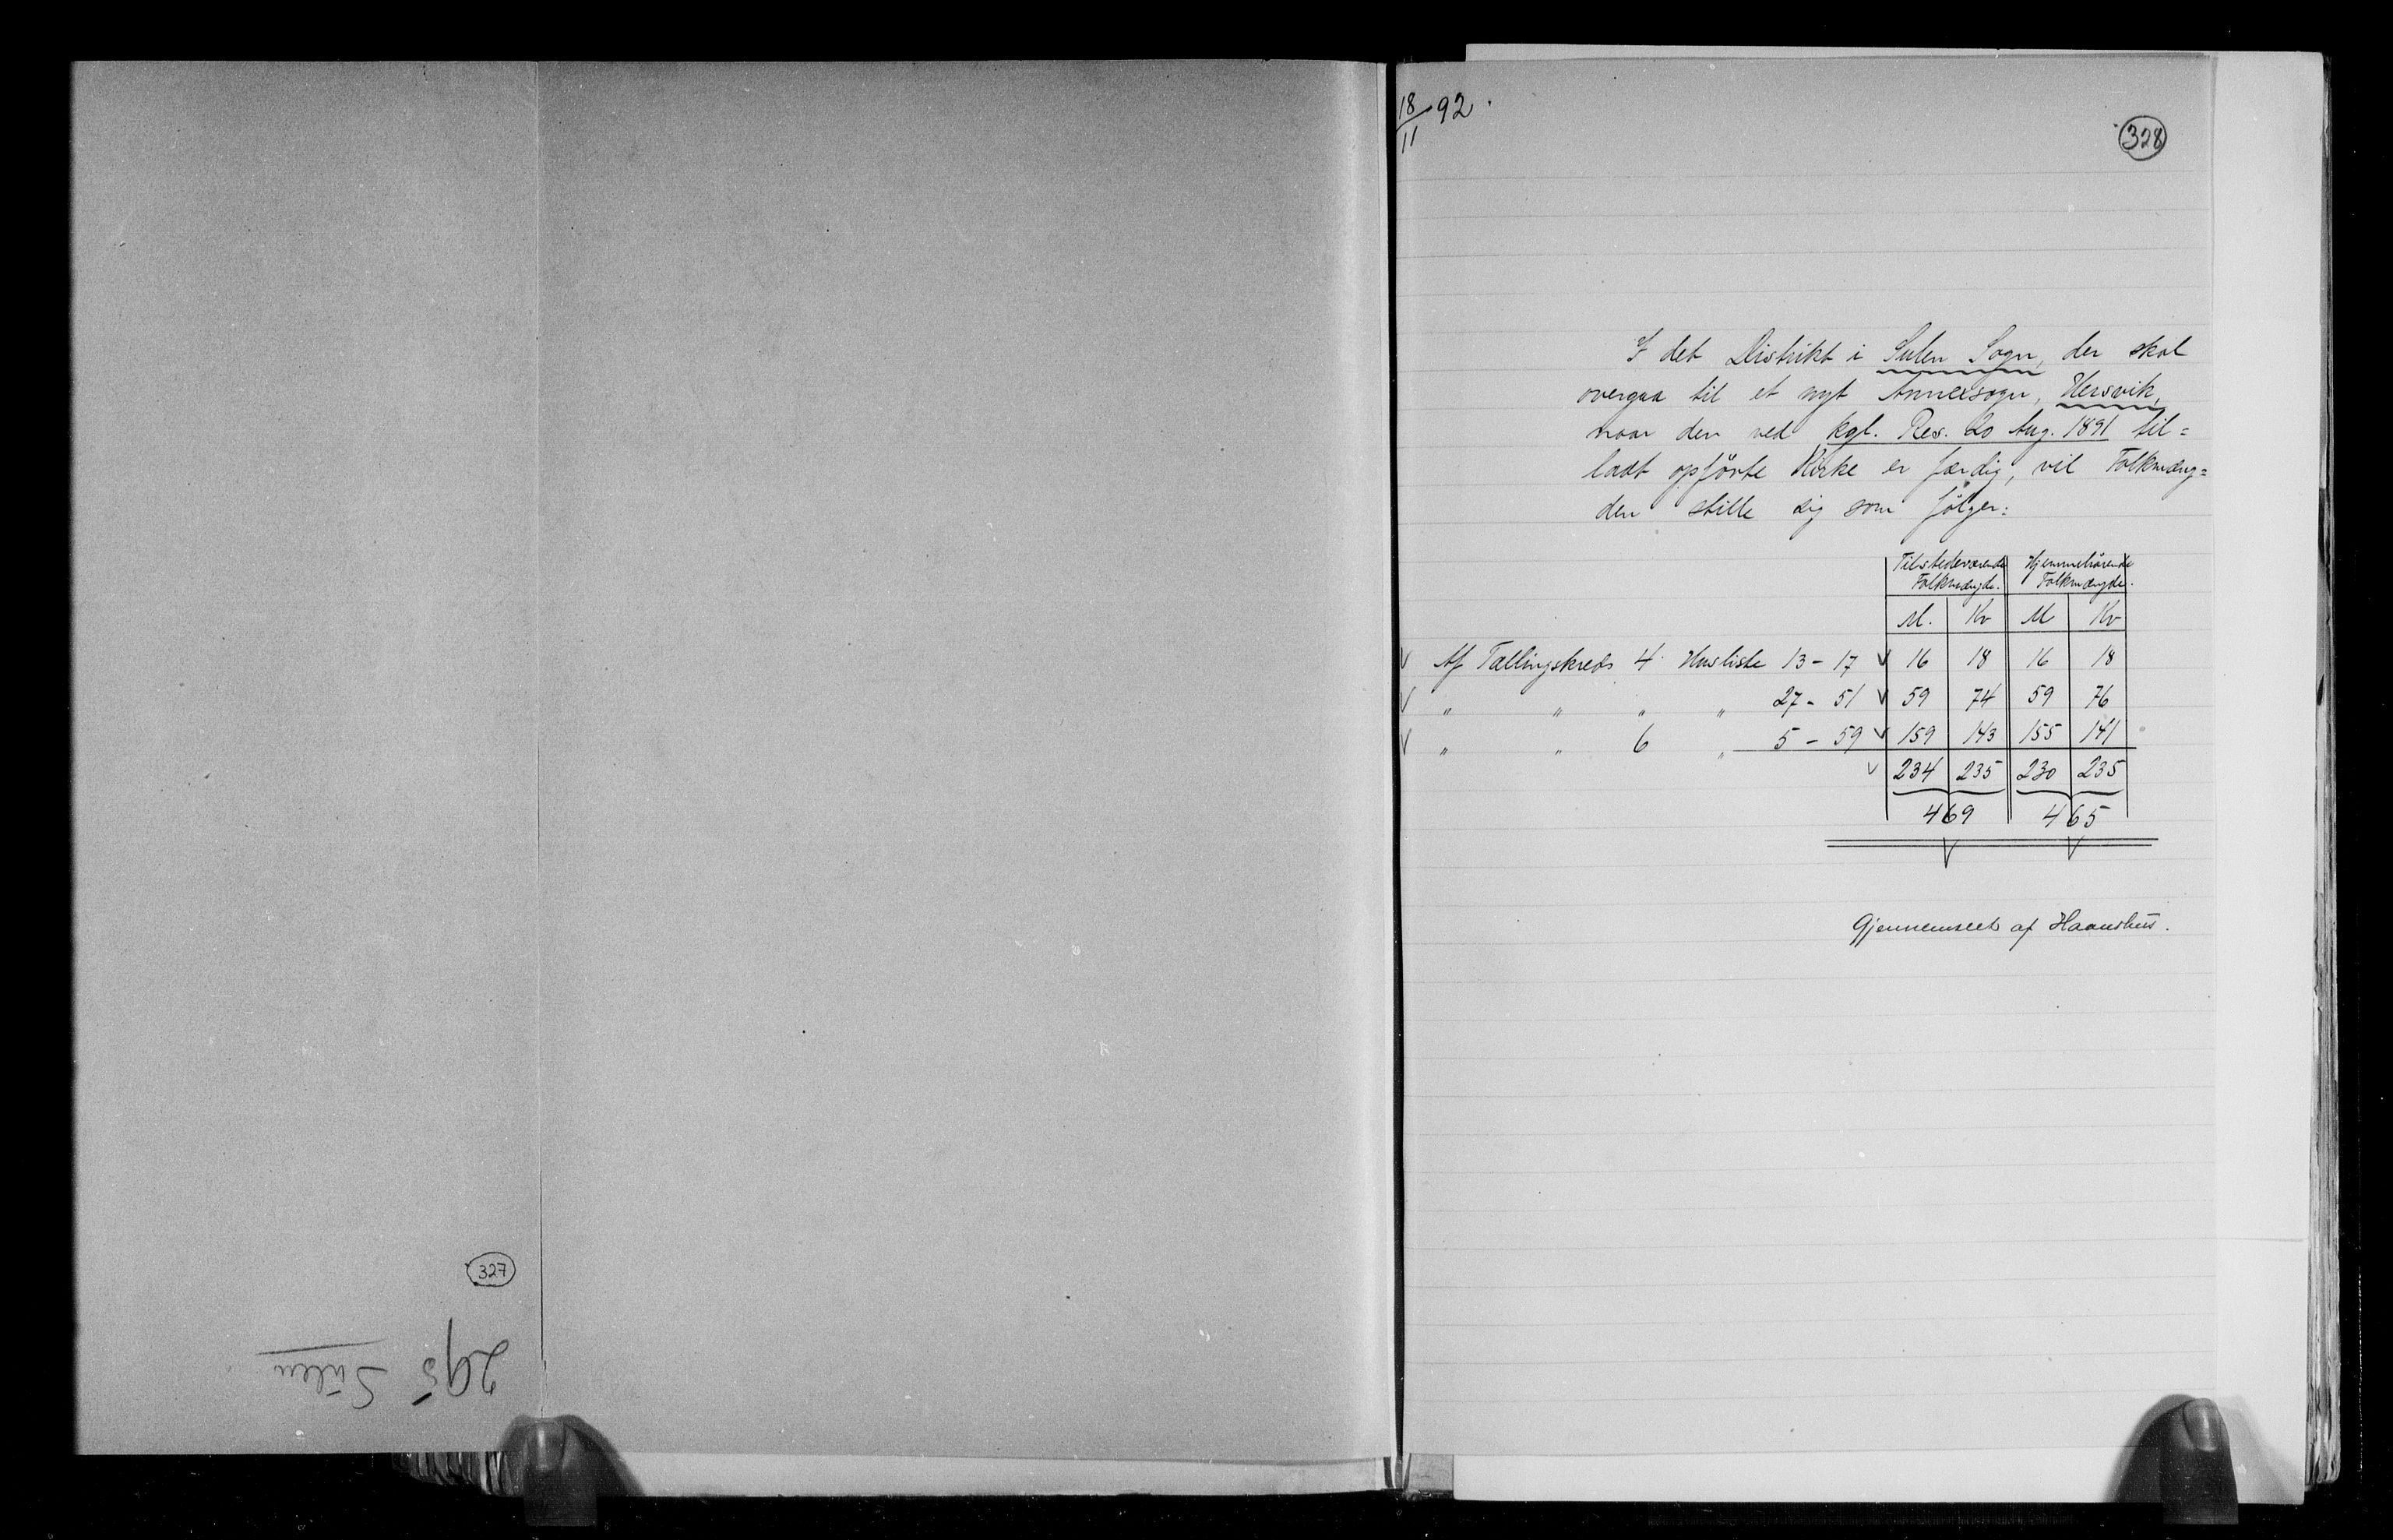 327
295 Sulen
18/11 92.
328
I det Distrikt i Sulen Sogn, der skal
overgaa til et nyt Annexsogn, Hersvik,
naar den ved kgl. Res. 20 Aug. 1891 til=
ladt opførte Kirke er færdig, vil Folkmæng=
den stille sig som følger:
Tilstedeværende Folkmængde. Hjemmehørende Folkmængde.
M. Kv M Kv
√ Af Tællingskreds 4 Husliste 13 - 17 √ 16 18 16 18
√ " " " " 27 - 51 √ 59 74 59 76
√ " " 6 " 5 - 59 √ 159 143 155 141
√ 234 235 230 235
469 465
√ √
Gjennemseet af